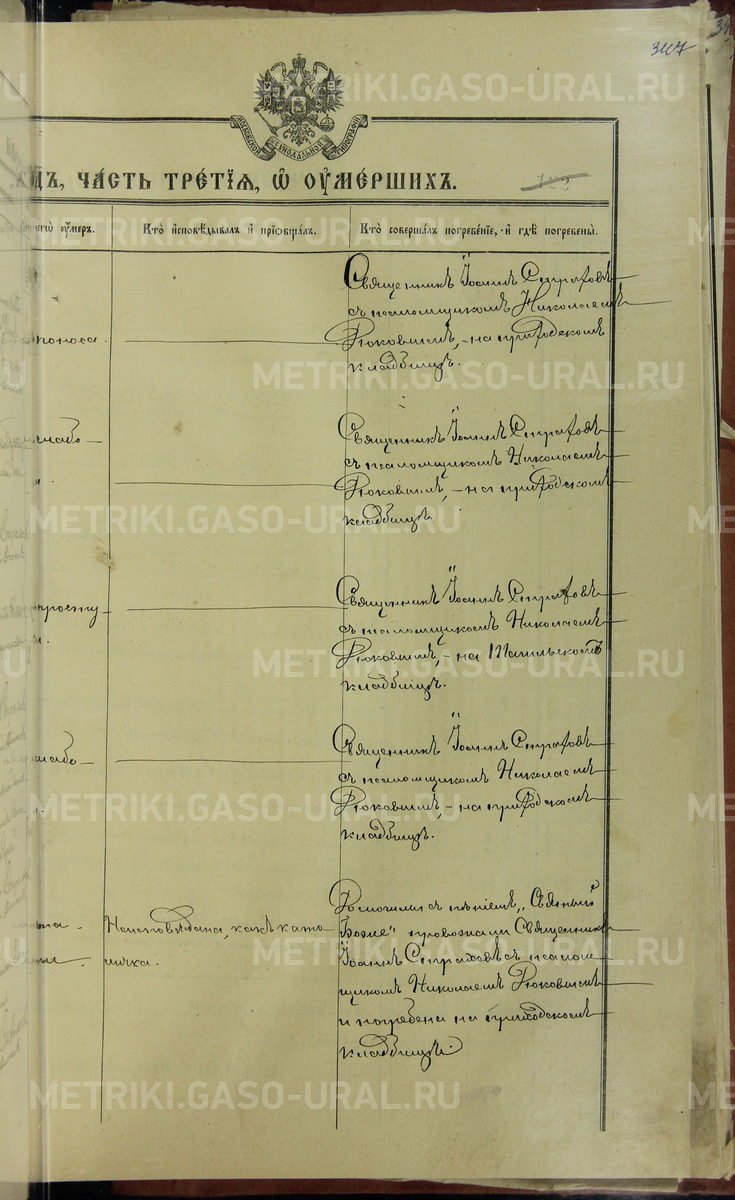 347
МОСКОВСКОЙ СѴНОДАЛЬНОЙ ТИПОГРАФІИ
ЧА́СТЬ ТРЕ́ТІѦ, Ѡ҆ ОУ҆МЕ́РШИХЪ.
оу҆меръ.
Кто̀ и҆сповѣ́дывалъ и҆ прїѡбща́лъ.
Кто̀ соверша́лъ погребе́нїе, и҆ гдѣ̀ погребены̀.
поноса.
Священникъ Іоаннъ Стратовъ
съ псаломщикомъ Николаемъ
на приходскомъ
кладбищѣ.
слабо
Священникъ Іоаннъ Стратовъ
съ псаломщикомъ Николаемъ
на приходскомъ
кладбищѣ.
Священникъ Іоаннъ Стратовъ
съ псаломщикомъ Николаемъ
на Тагильскомъ
кладбищѣ.
слабо
Священникъ Іоаннъ Стратовъ
съ псаломщикомъ Николаемъ
на приходскомъ
кладбищѣ.
Неисповѣдана, какъ като
личка.
До могилы съ пѣніемъ „Святый
Боже“ провожали Священникъ
Іоаннъ Стратовъ съ псалом
щикомъ Николаемъ
и погребена на приходскомъ
кладбищѣ.
METRIKI.GASO-URAL.RU